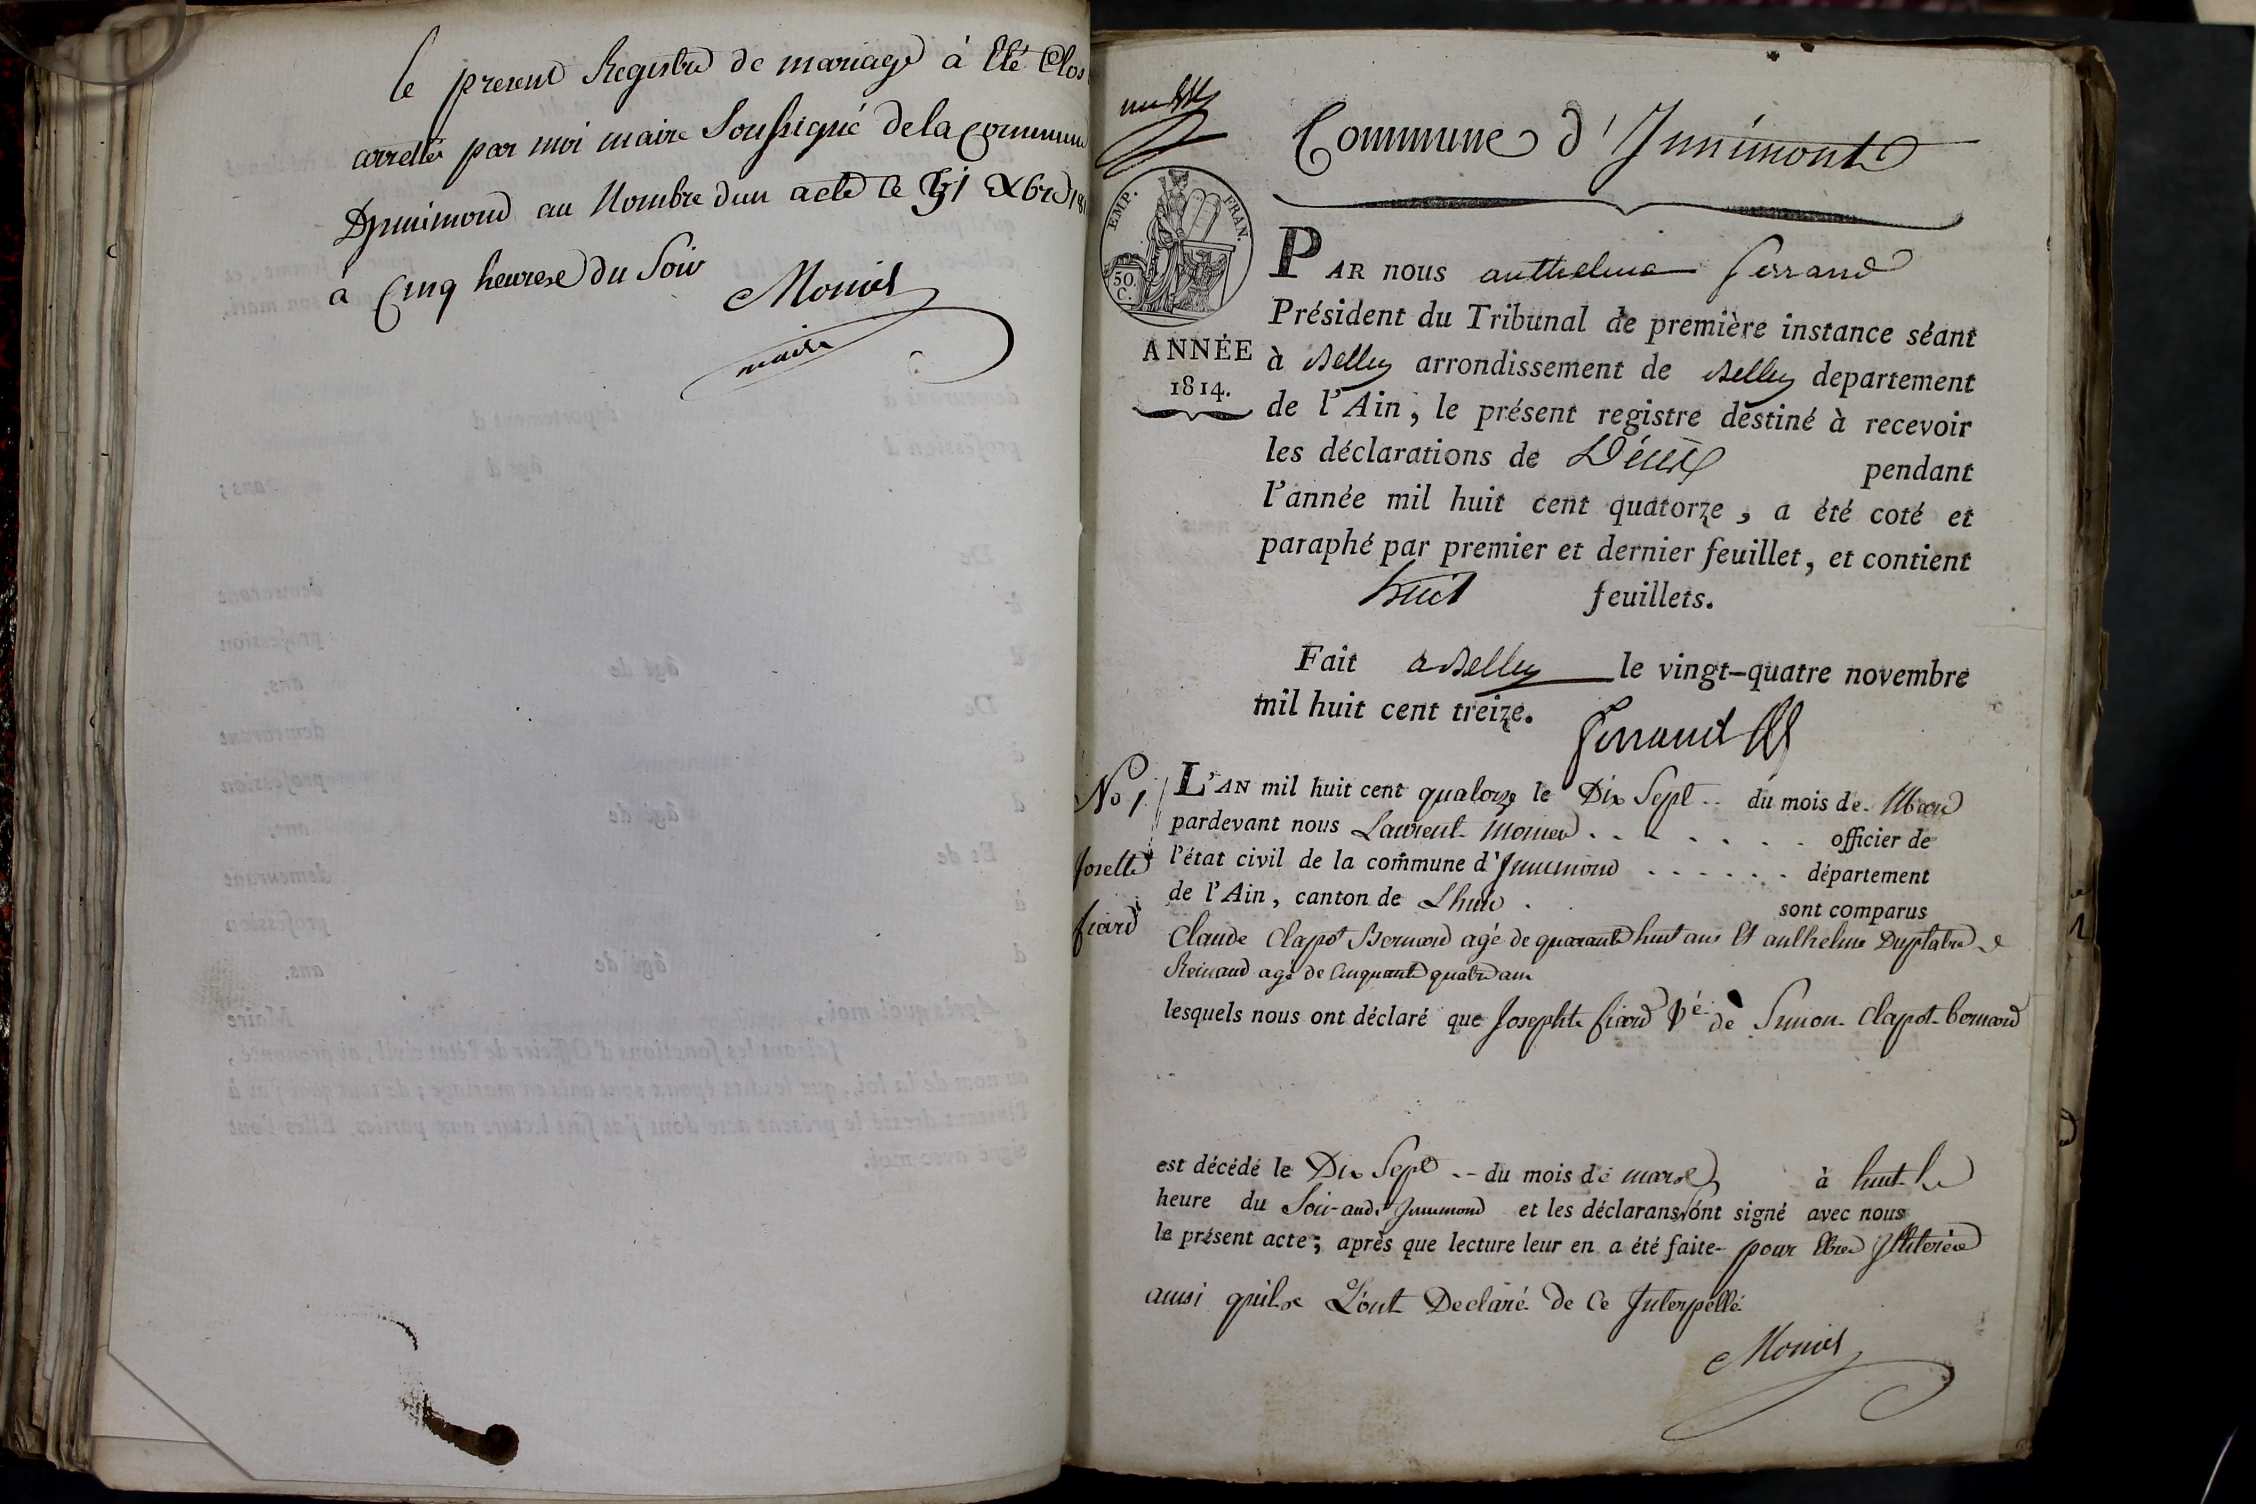 le present Registre de mariage à Eté Clos
arretté par moi maire Soussigné de la commune
D'jnnimond au Nombre d'un acte le 31 Xbre 18
à Cinq heurese du Soir
Monier
maire
Commune d'Jnnimont
EMP. FRAN.
50. C.
PAR nous anthelme ferrand
Président du Tribunal de première instance séant
ANNÉE
1814.
à Belley arrondissement de Belley departement
de l'Ain, le présent registre destiné à recevoir
les déclarations de Décès pendant
l'année mil huit cent quatorze, a été coté et
paraphé par premier et dernier feuillet, et contient
huit feuillets.
Fait a Belley le vingt-quatre novembre
mil huit cent treize.
ferrand
No 1
Josette
ficard
L'AN mil huit cent quatorze le Dix Sept du mois de Mars
pardevant nous Laurent Monier officier de
l'état civil de la commune d'Jnnimond département
de l'Ain, canton de Lhuis sont comparus
Claude Clapot Bernard agé de quarante huit ans Et anthelme Duplatre
Reinaud agé de Cinquante quatre ans
lesquels nous ont déclaré que Josephte ficard Vé de Simon Clapot-bernard
est décédé le Dix Sept du mois de mars à huit
heure du Soir audt Jnnimond et les déclarans ont signé avec nous
le présent acte; après que lecture leur en a été faite pour Etre Jlliterée
ainsi qu'ils L'ont Declaré de Ce Interpellé
Monier